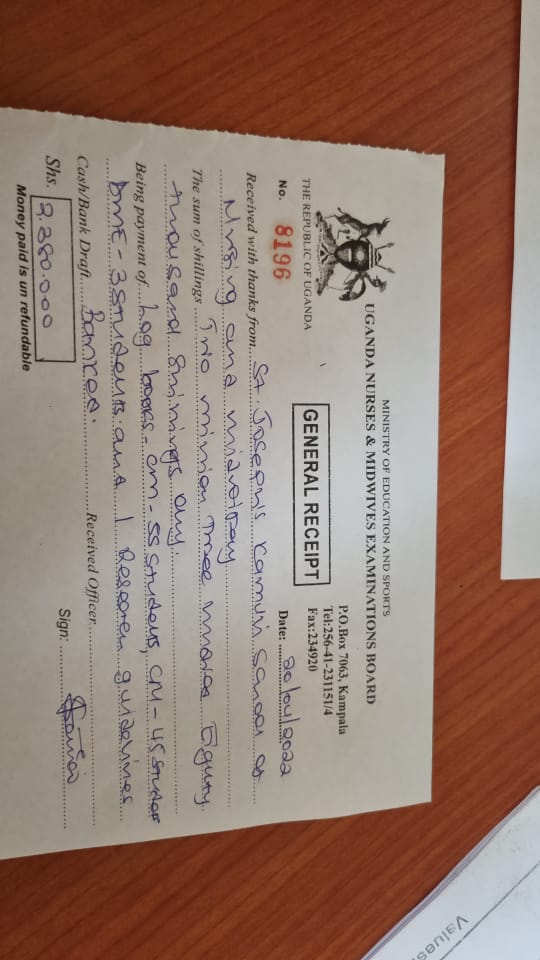 MINISTRY OF EDUCATION AND SPORTS
UGANDA NURSES & MIDWIVES EXAMINATIONS BOARD
P.O.Box 7063, Kampala
Tel:256-41-231151/4
Fax:234920
THE REPUBLIC OF UGANDA
GENERAL RECEIPT
No. 8196
Date: 20/04/2022
Received with thanks from St. Joseph's Kamuli School of
Nursing and midwifery
The sum of shillings Two million Three hundred Eighty
thousand shillings only.
Being payment of Log books - CM - 55 students, CN - 45 students
DME - 3 students and 1 Research guidelines
Cash/Bank Draft Banked. Received Officer
Shs. 2.380.000
Sign:
Money paid is un refundable
Values